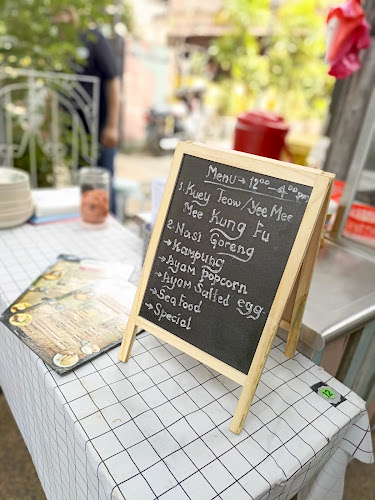 Menu → 12⁰⁰ - 4⁰⁰ pm
1. Kuey Teow / Yee Mee
Mee Kung Fu
2. Nasi Goreng
→ Kampung
→ Ayam popcorn
→ Ayam Salted egg
→ Seafood
→ Special